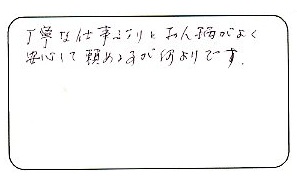 丁寧な仕事ぶりとお人柄がよく
安心して頼めるが何よりです.